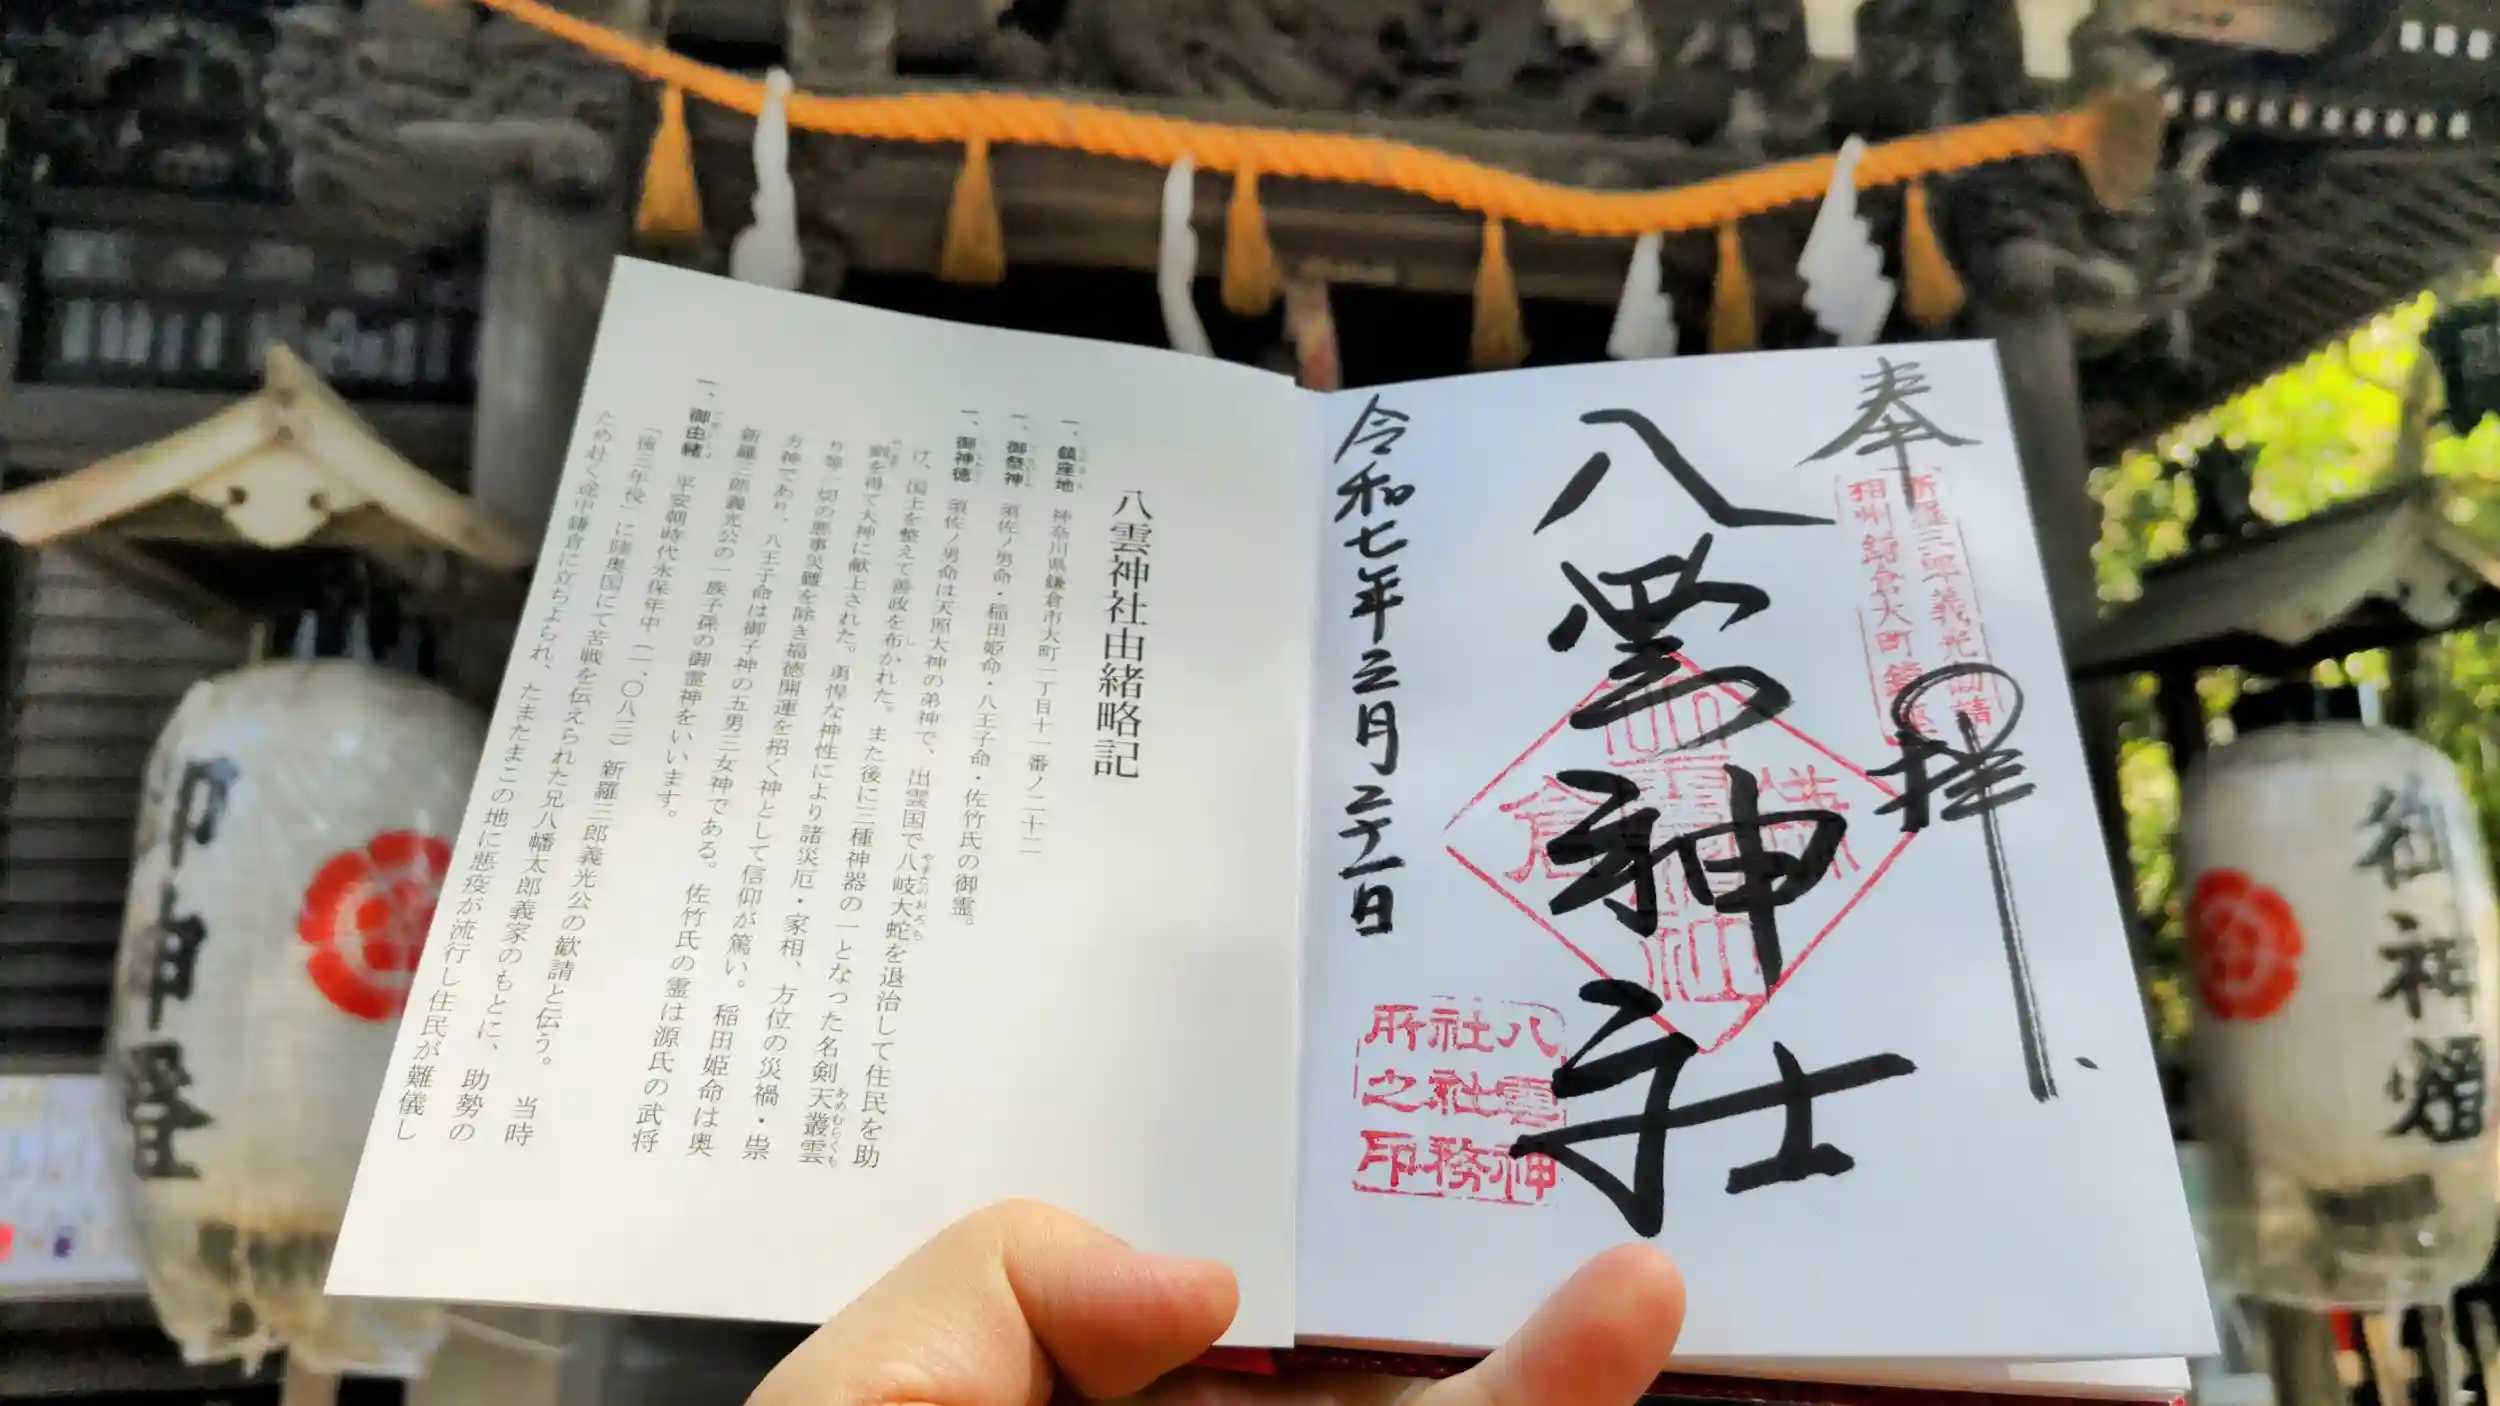 奉拝
新羅三郎義光勧請
相州鎌倉大町鎮座
八雲神社
令和七年三月二十一日
八雲神
社社務
所之印
八雲神社由緒略記
一、鎮座地 神奈川県鎌倉市大町一丁目十一番ノ二十二
一、御祭神 須佐ノ男命・稲田姫命・八王子命・佐竹氏の御霊。
一、御神徳 須佐ノ男命は天照大神の弟神で、出雲国で八岐大蛇を退治して住民を助
け、国土を整えて善政を布かれた。また後に三種神器の一となった名剣天叢雲
剣を得て大神に献上された。勇悍な神性により諸災厄・家相、方位の災禍・祟
り等一切の悪事災難を除き福徳開運を招く神として信仰が篤い。稲田姫命は奥
方神であり、八王子命は御子神の五男三女神である。佐竹氏の霊は源氏の武将
新羅三郎義光公の一族子孫の御霊神をいいます。
一、御由緒 平安朝時代永保年中(一、〇八三)新羅三郎義光公の歓請と伝う。当時
「後三年役」に陸奥国にて苦戦を伝えられた兄八幡太郎義家のもとに、助勢の
ため赴く途中鎌倉に立ちよられ、たまたまこの地に悪疫が流行し住民が難儀し
御神燈
御神燈